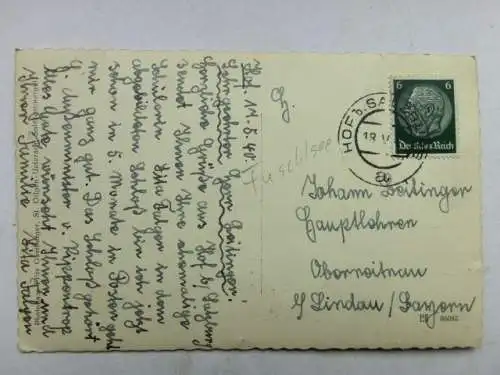 Hof, 11.5.40.
Sehr geehrter Herr Beitinger!
Herzliche Grüße aus Hof b. Salzburg
sendet Ihnen Ihre ehemalige
Schülerin Rita In dem
abgebildeten Schloß bin ich jetzt
schon in 5. Monate in Posten geht
mir ganz gut. Das Schloß gehört
H. Außenminister v. Rippentrop
Alles Gute wünscht Ihnen und
Ihrer Familie Rita
Fuschlsee
Hz.
HOF b. SA
6 6
Deutsches Reich
a
Johann Beitinger
Hauptlehrer
Oberreitnau
b/ Lindau / Bayern